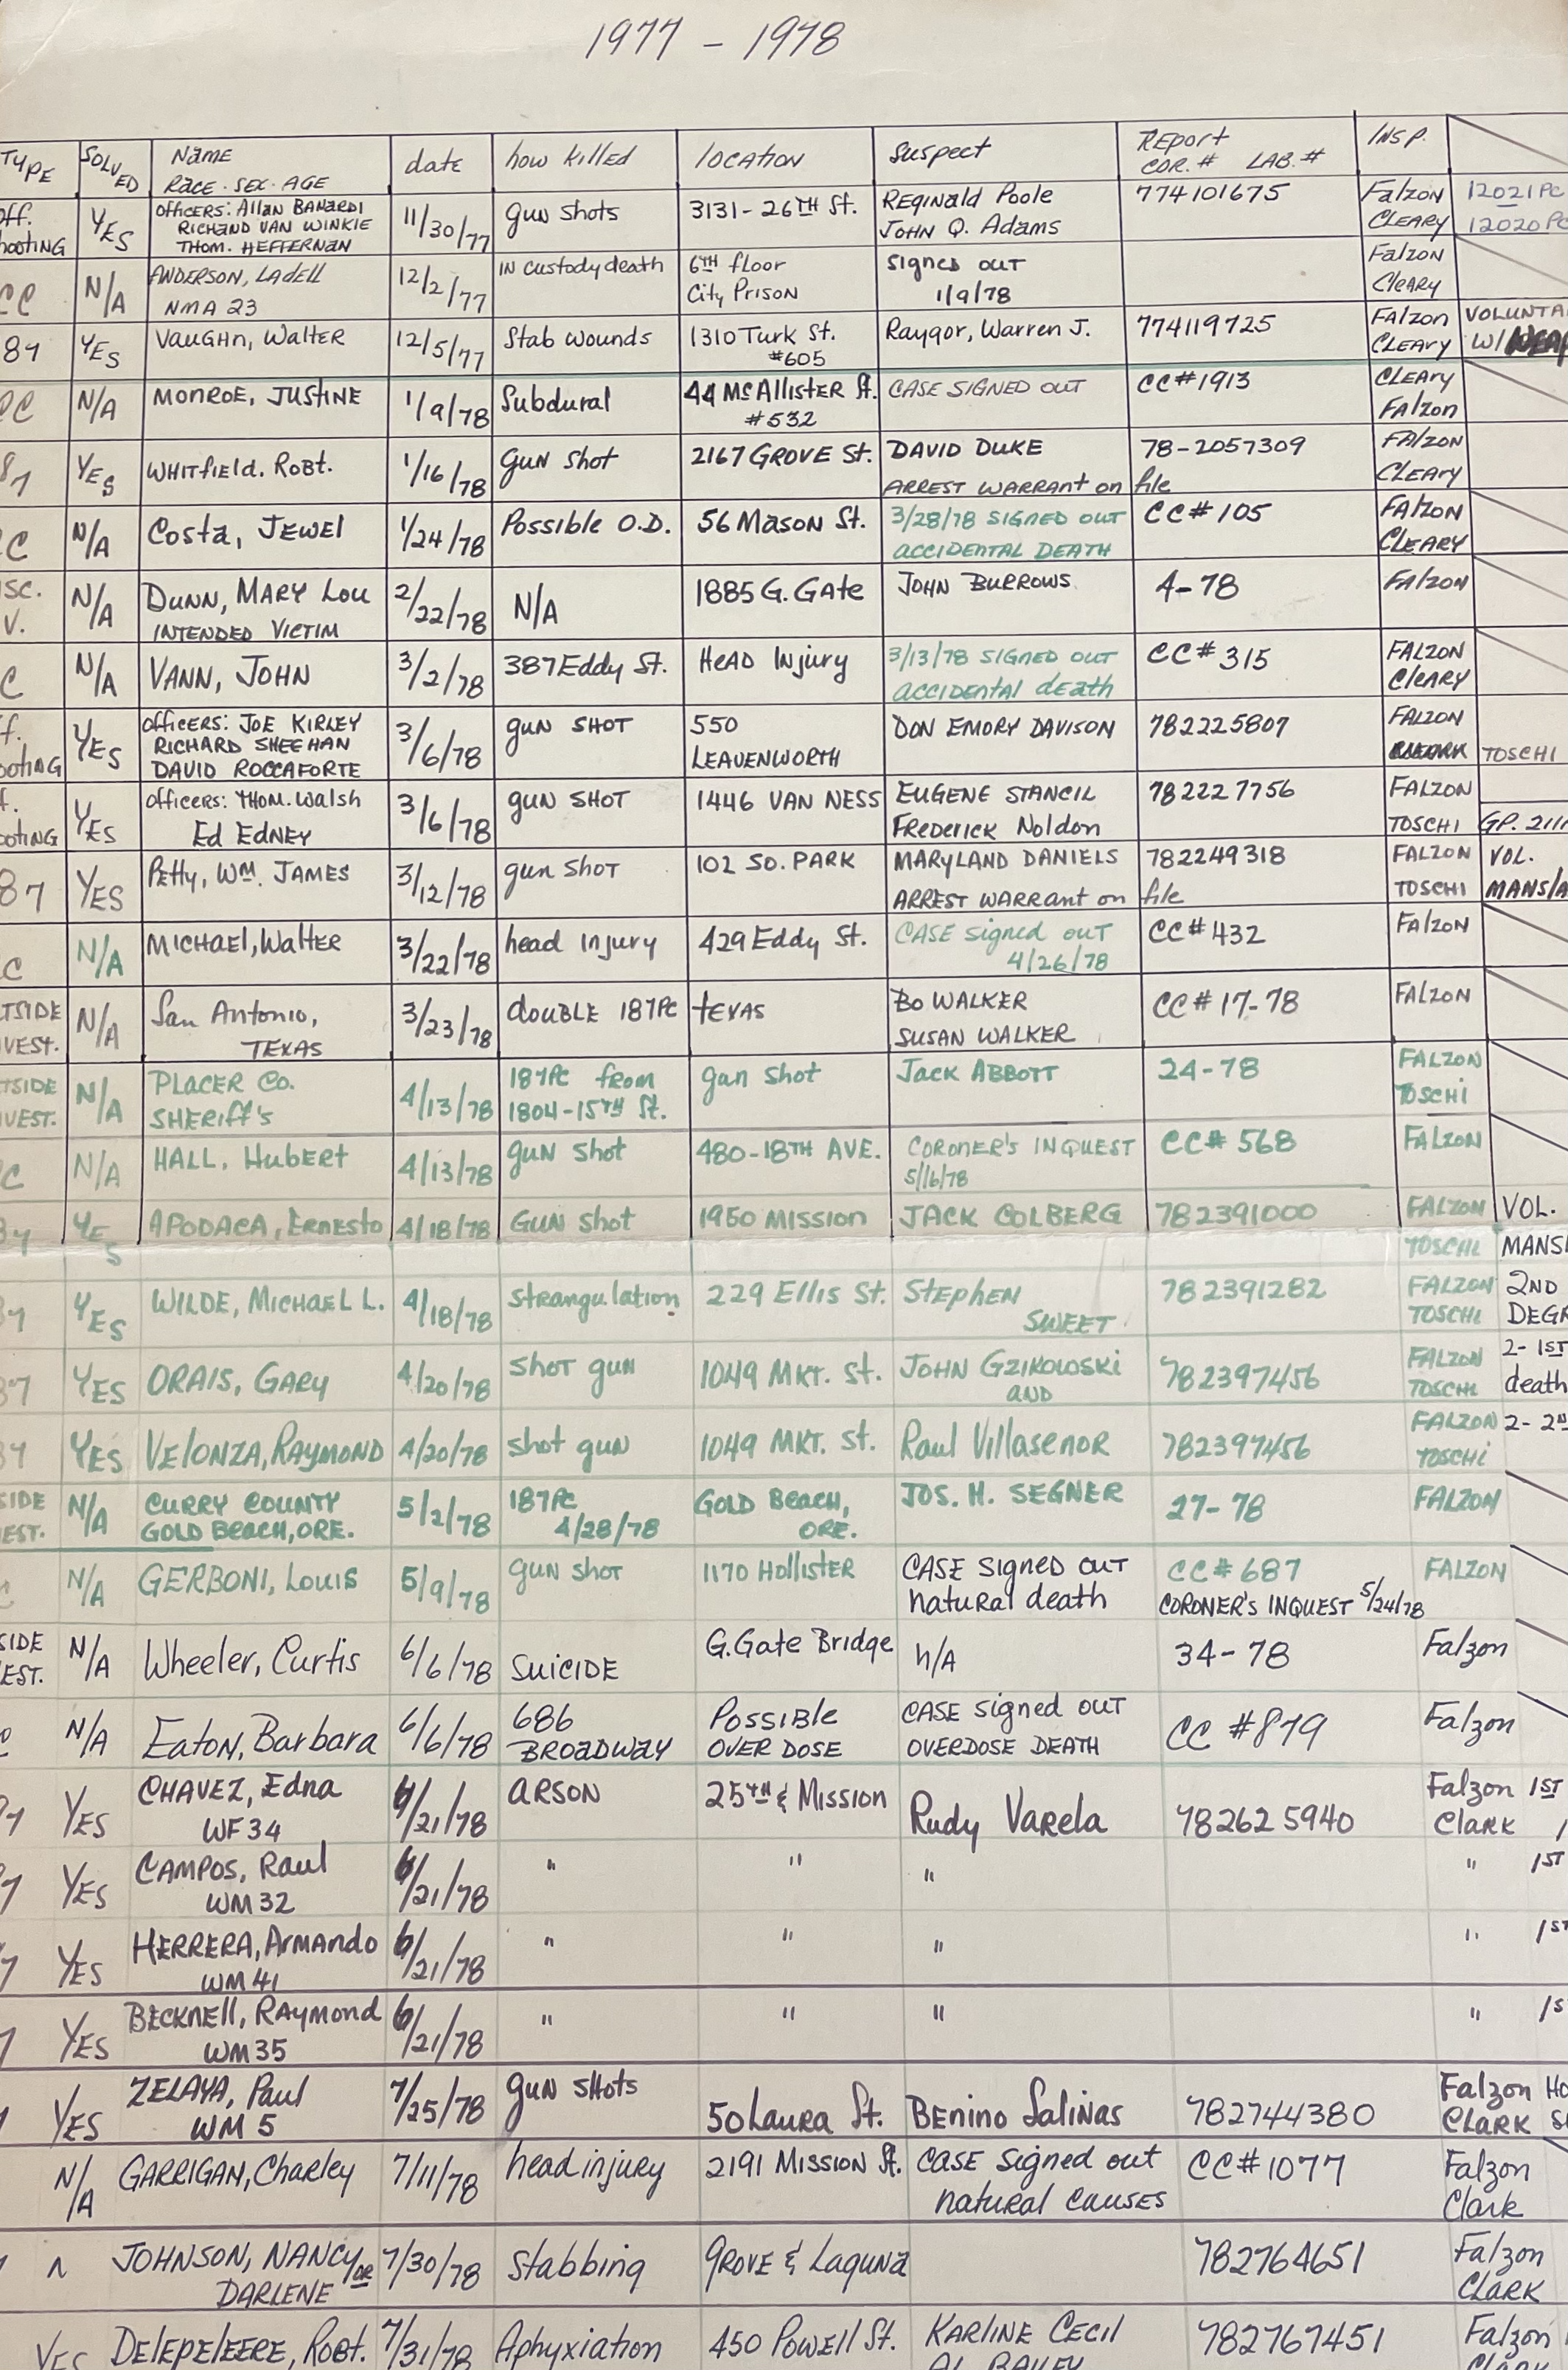 1977 - 1978
TYPE SOLVED Name Race. Sex. Age date how killed location Suspect Report Cor. # Lab. # Insp.
off. YES officers: Allan Banardi 11/30/77 gun shots 3131-26TH St. Reginald Poole 774101675 Falzon 12021 PC
hooting Richard Van Winkie John Q. Adams Cleary 12020 PC
Thom. Heffernan
CC N/A Anderson, Ladell 12/2/77 in custody death 6TH floor Signed out Falzon
NMA 23 City Prison 1/9/78 Cleary
87 YES Vaughn, Walter 12/5/77 Stab wounds 1310 Turk St. Raygor, Warren J. 774119725 Falzon VOLUNTA
#605 Cleary W/
CC N/A Monroe, Justine 1/9/78 Subdural 44 McAllister St. Case signed out CC#1913 Cleary
#532 Falzon
87 YES Whitfield. Robt. 1/16/78 gun shot 2167 Grove St. David Duke 78-2057309 Falzon
Arrest warrant on file Cleary
CC N/A Costa, Jewel 1/24/78 Possible O.D. 56 Mason St. 3/28/78 signed out CC#105 Falzon
accidental death Cleary
ISC. N/A Dunn, Mary Lou 2/22/78 N/A 1885 G. Gate John Burrows 4-78 Falzon
V. Intended Victim
C N/A Vann, John 3/2/78 387 Eddy St. Head Injury 3/13/78 signed out CC#315 Falzon
accidental death Cleary
f. YES officers: Joe Kirley 3/6/78 gun shot 550 Don Emory Davison 782225807 Falzon
ooting Richard Sheehan Leavenworth TOSCHI
David Roccaforte
f. YES officers: Thom. Walsh 3/6/78 gun shot 1446 Van Ness Eugene Stancil 782227756 Falzon
ooting Ed Edney Frederick Noldon Toschi GP. 211
87 YES Petty, Wm. James 3/12/78 gun shot 102 So. Park Maryland Daniels 782249318 Falzon VOL.
Arrest warrant on file Toschi MANSLA
C N/A Michael, Walter 3/22/78 head injury 429 Eddy St. Case signed out CC#432 Falzon
4/26/78
TSIDE N/A San Antonio, 3/23/78 double 187PC Texas Bo Walker CC#17-78 Falzon
VEST. Texas Susan Walker
TSIDE N/A Placer Co. 4/13/78 187PC from gun shot Jack Abbott 24-78 Falzon
VEST. Sheriff's 1804-15TH St. Toschi
C N/A Hall, Hubert 4/13/78 gun shot 480-18TH Ave. Coroner's Inquest CC#568 Falzon
5/16/78
87 YES Apodaca, Ernesto 4/18/78 Gun shot 1950 Mission Jack Colberg 782391000 Falzon VOL.
Toschi MANSL
87 YES Wilde, Michael L. 4/18/78 Strangulation 229 Ellis St. Stephen 782391282 Falzon 2ND
Sweet Toschi DEGR
87 YES Orais, Gary 4/20/78 shot gun 1049 Mkt. St. John Gzikoloski 782397456 Falzon 2-1ST
and Toschi death
87 YES Velonza, Raymond 4/20/78 shot gun 1049 Mkt. St. Raul Villasenor 782397456 Falzon 2-2N
Toschi
SIDE N/A Curry County 5/2/78 187PC Gold Beach, Jos. H. Segner 27-78 Falzon
EST. Gold Beach, Ore. 4/28/78 Ore.
C N/A Gerboni, Louis 5/9/78 gun shot 1170 Hollister Case signed out CC#687 Falzon
natural death Coroner's Inquest 5/24/78
SIDE N/A Wheeler, Curtis 6/6/78 Suicide G. Gate Bridge n/A 34-78 Falzon
EST.
C N/A Eaton, Barbara 6/6/78 686 Possible Case signed out CC #879 Falzon
Broadway Over Dose Overdose Death
87 YES Chavez, Edna 6/21/78 Arson 25TH & Mission Rudy Varela 782625940 Falzon 1ST
WF 34 Clark
7 YES Campos, Raul 6/21/78 " " " " 1ST
WM 32
7 YES Herrera, Armando 6/21/78 " " " " 1ST
WM 41
7 YES Becknell, Raymond 6/21/78 " " " " 1S
WM 35
YES Zelaya, Paul 7/25/78 gun shots 50 Laura St. Benino Salinas 782744380 Falzon HO
WM 5 Clark
N/A Garrigan, Charley 7/11/78 head injury 2191 Mission St. Case signed out CC#1077 Falzon
natural causes Clark
Johnson, Nancy or 7/30/78 Stabbing Grove & Laguna 782764651 Falzon
Darlene Clark
YES Delepeleere, Robt. 7/31/78 Aphyxiation 450 Powell St. Karline Cecil 782767451 Falzon
Al Bailey Clark